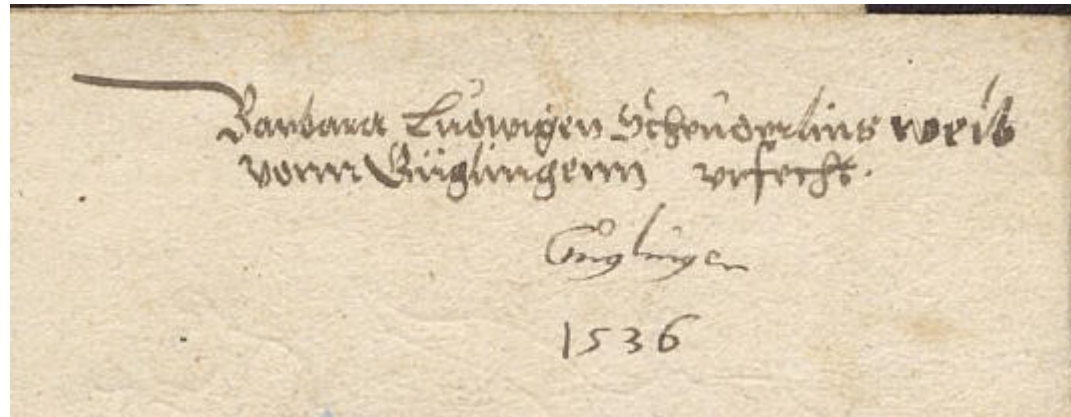 Barbara Ludwigen Scheuderlins weib
vonn Güglingenn vrfecht.
Güglingen
1536